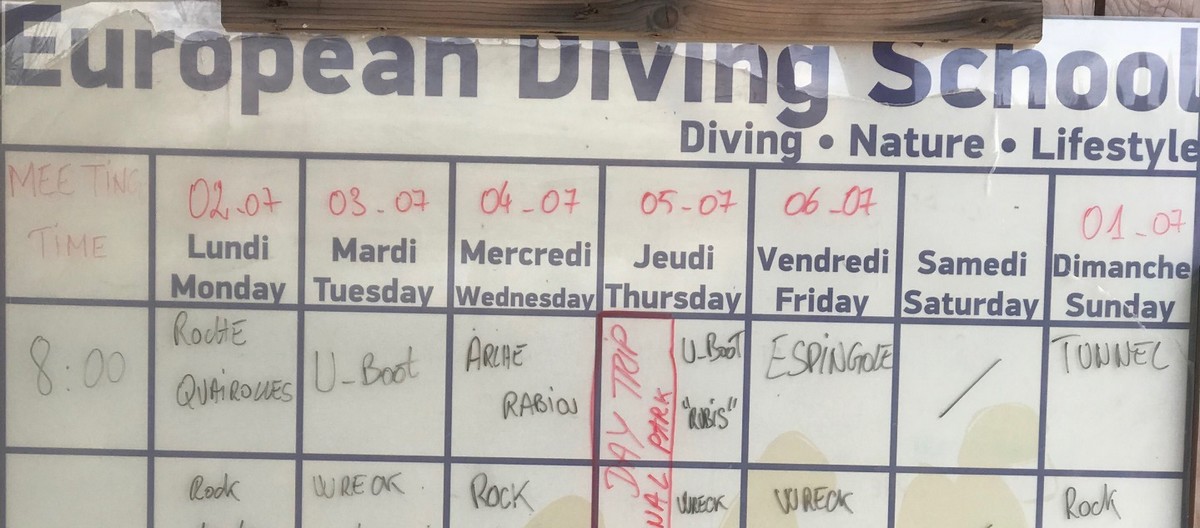 European Diving School
Diving • Nature • Lifestyle
MEETING
TIME
02-07
Lundi
Monday
03-07
Mardi
Tuesday
04-07
Mercredi
Wednesday
05-07
Jeudi
Thursday
06-07
Vendredi
Friday
Samedi
Saturday
01-07
Dimanche
Sunday
8:00
ROCHE
QUAIROLLES
U-Boot
ARCHE
RABIOU
DAY TRIP
NAL PARK
U-Boot
"RUBIS"
ESPINGOLE
/
TUNNEL
Rock
WRECK
ROCK
WRECK
WRECK
Rock